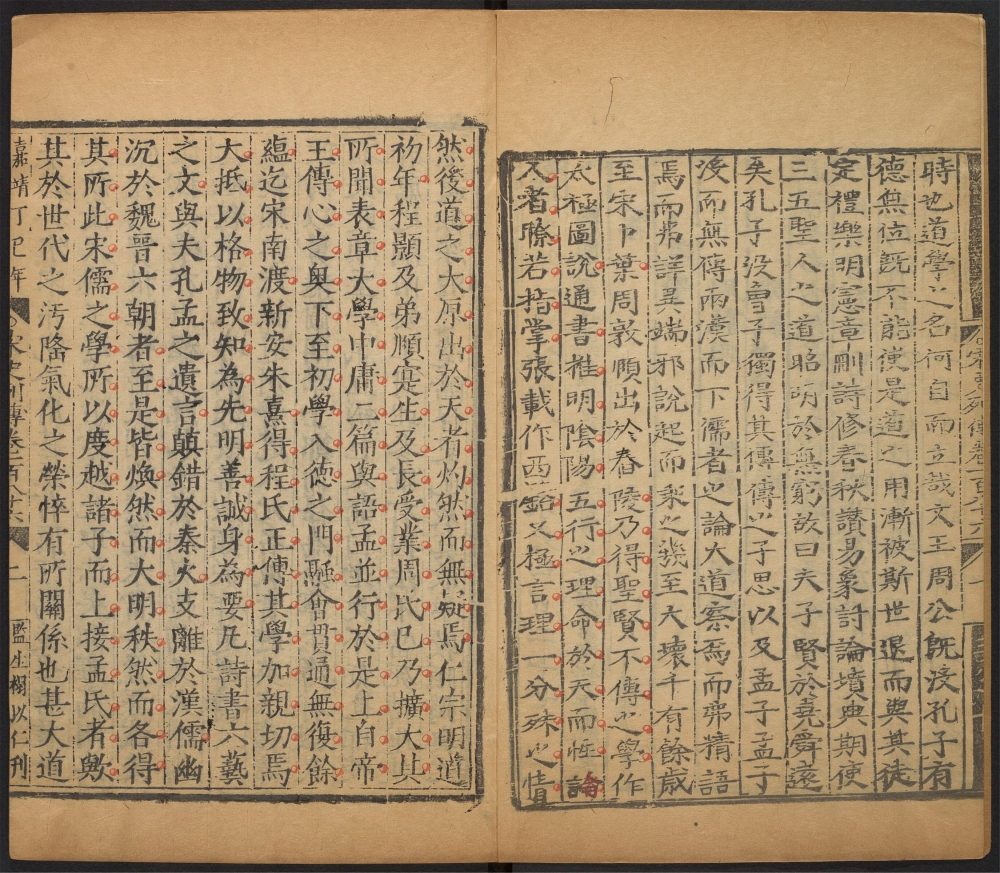 時也道學之名何自而立哉文王周公旣没孔子有
德無位旣不能使是道之用漸被斯世退而與其徒
定禮樂明憲章刪詩修春秋讚易象討論墳典期使
三五聖人之道昭明於無窮故曰夫子賢於堯舜遠
矣孔子没曾子獨得其傳傳之子思以及孟子孟子
没而無傳兩漢而下儒者之論大道察焉而弗精語
焉而弗詳異端邪說起而乘之幾至大壞千有餘歲
至宋中葉周敦頤出於舂陵乃得聖賢不傳之學作
太極圖說通書推明陰陽五行之理命於天而性論
人者瞭若指掌張載作西銘又極言理一分殊之情
然後道之大原出於天者灼然而無疑焉仁宗明道
初年程顥及弟頤寔生及長受業周氏已乃擴大其
所聞表章大學中庸二篇與語孟並行於是上自帝
王傳心之奥下至初學入德之門融會貫通無復餘
蘊迄宋南渡新安朱熹得程氏正傳其學加親切焉
大抵以格物致知為先明善誠身為要凡詩書六藝
之文與夫孔孟之遺言顛錯於秦火支離於漢儒幽
沉於魏晉六朝者至是皆煥然而大明秩然而各得
其所此宋儒之學所以度越諸子而上接孟氏者歟
其於世代之汚隆氣化之榮悴有所關係也甚大道
嘉靖丁巳年 宋史列傳卷百八十六 二 監生楊以仁刊